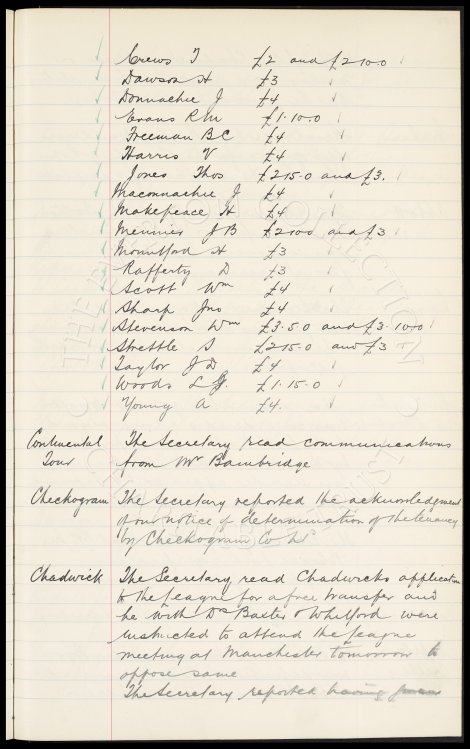 Crews T £2 and £2 10.0
Dawson H £3
Donnachie J £4
Evans R M £1.10.0
Freeman B C £4
Harris V £4
Jones Thos £2 15.0 and £3.
Maconnachie J £4
Makepeace H £4
Mennies J B £2 10 0 and £3
Mountford H £3
Rafferty D £3
Scott Wm £4
Sharp Jno £4
Stevenson Wm £3.5.0 and £3.10.0
Strettle S £2 15.0 and £3
Taylor J D £4
Woods L J. £1.15.0
Young A £4.
Continental Tour
The Secretary read communications
from Mr Bainbridge
Checkogram
The Secretary reported the acknowledgment
of our notice of determination of the tenancy
by Checkogram Co Ld
Chadwick
The Secretary read Chadwicks application
to the league for a free transfer and
he with Drs Baxter & Whitford were
instructed to attend the league
meeting at Manchester tomorrow to
oppose same
The Secretary reported having
THE EVERTON COLLECTION